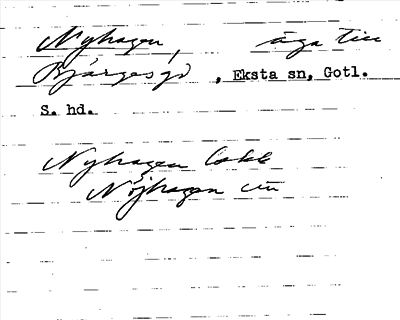 Nyhagen, äga till
Bjärges gd, Eksta sn, Gotl.
S. hd.
Nyhagen lokk
Nöjhagen un